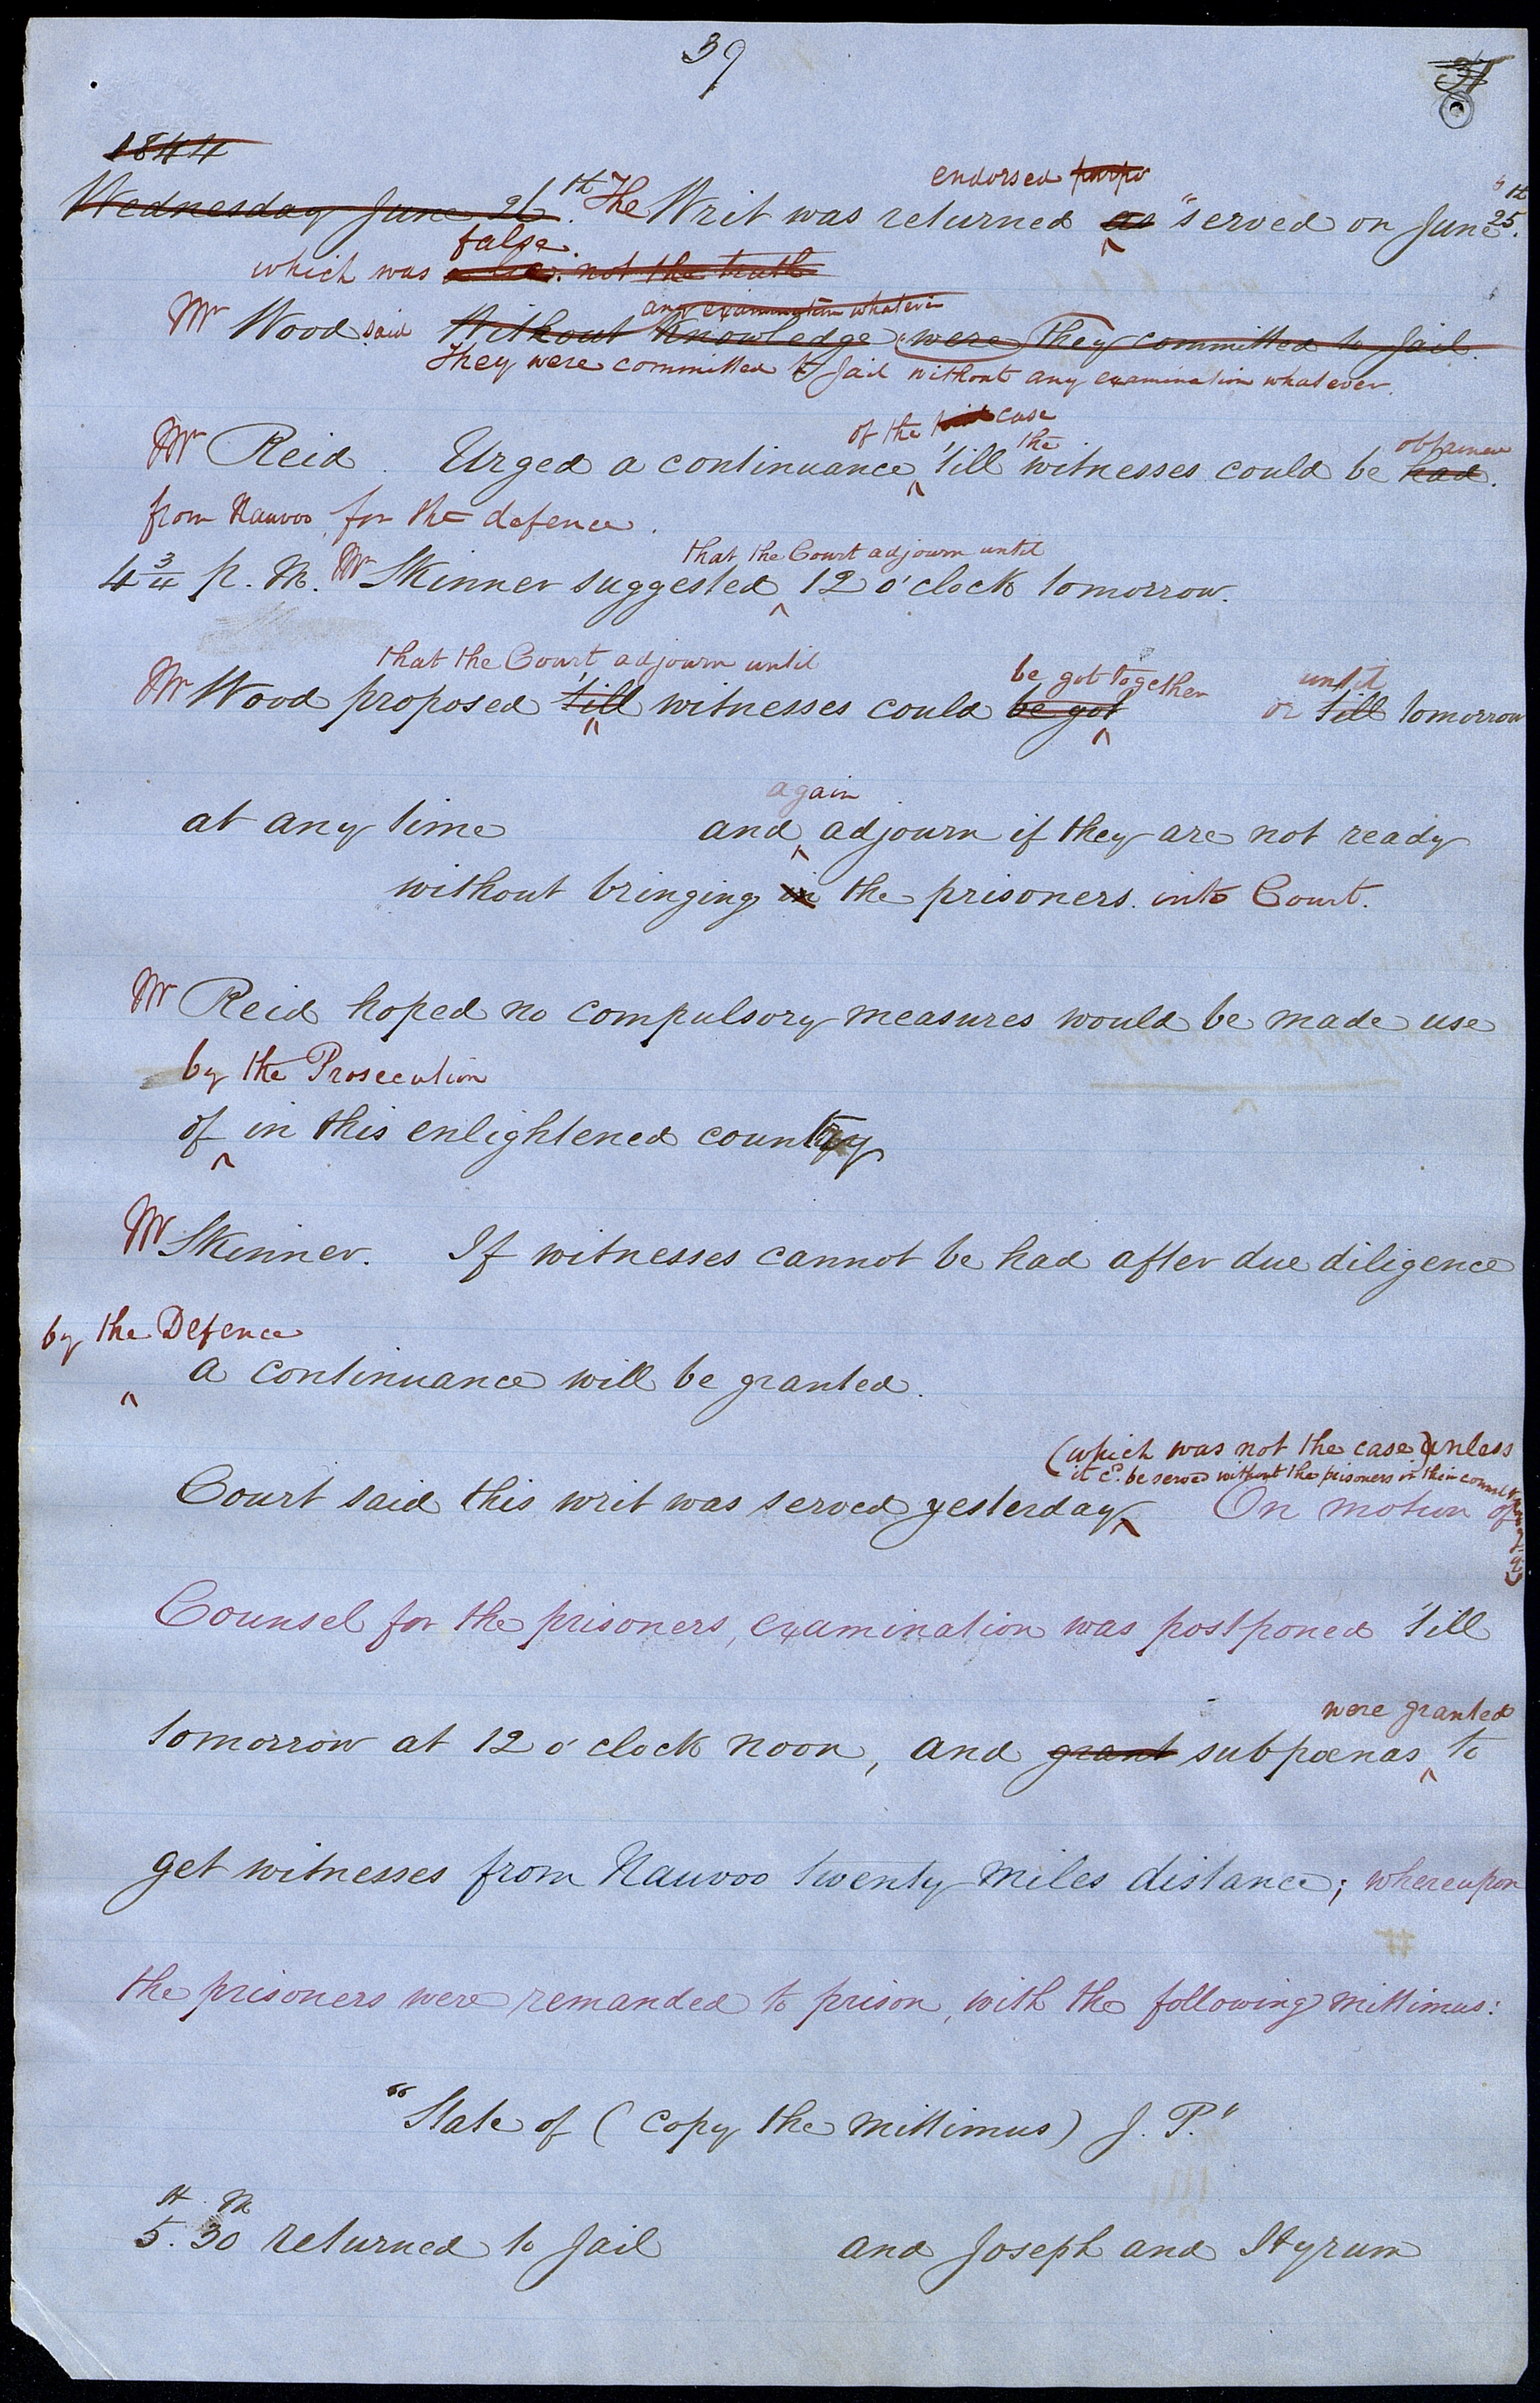 39
1844
endorsed purpo
Wednesday June 26th. The Writ was returned as "served on June 25th.
false.
which was a lie. not the truth
any examination whatever
Mr Wood said Without knowledge were they committed to Jail.
They were committed to Jail without any examination whatever.
of the case the obtained
Mr Reid. Urged a continuance, 'till witnesses could be had.
from Nauvoo, for the defence.
that the Court adjourn until
4 3/4 p. M. Mr Skinner suggested 12 o'clock tomorrow.
that the Court adjourn until be got together until
Mr Wood proposed 'till witnesses could be got or till tomorrow
again
at any time and adjourn if they are not ready
without bringing in the prisoners. into Court.
Mr Reid hoped no compulsory measures would be made use
by the Prosecution
of in this enlightened country
Mr Skinner. If witnesses cannot be had after due diligence
by the Defence
a continuance will be granted.
(which was not the case) unless
it cd. be served without the prisoners or their counsel
Court said this writ was served yesterday On motion of
Counsel for the prisoners, examination was postponed 'till
were granted
tomorrow at 12 o'clock noon, and grant subpœnas to
get witnesses from Nauvoo twenty miles distance; whereupon
the prisoners were remanded to prison, with the following mittimus:
"State of (copy the mittimus) J. P."
H. M
5. 30 returned to Jail and Joseph and Hyrum